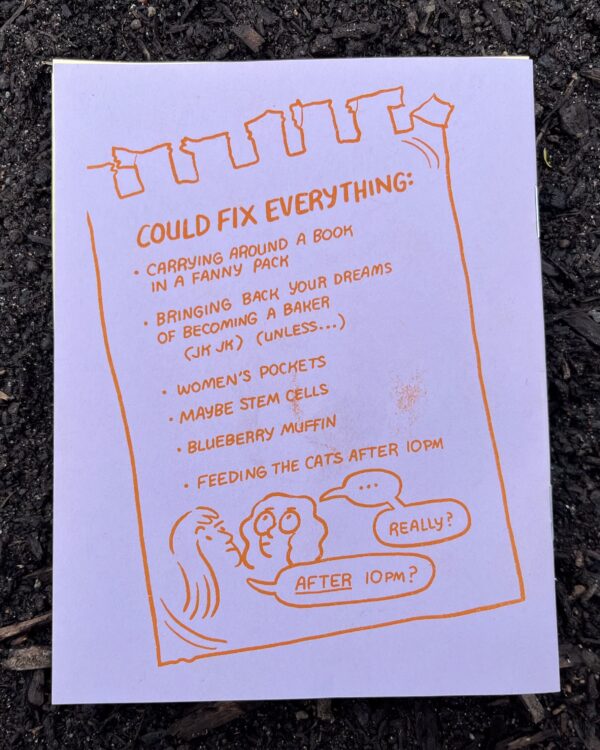 COULD FIX EVERYTHING:
• CARRYING AROUND A BOOK
IN A FANNY PACK
• BRINGING BACK YOUR DREAMS
OF BECOMING A BAKER
(JK JK) (UNLESS...)
• WOMEN'S POCKETS
• MAYBE STEM CELLS
• BLUEBERRY MUFFIN
• FEEDING THE CATS AFTER 10PM
...
REALLY?
AFTER 10PM?